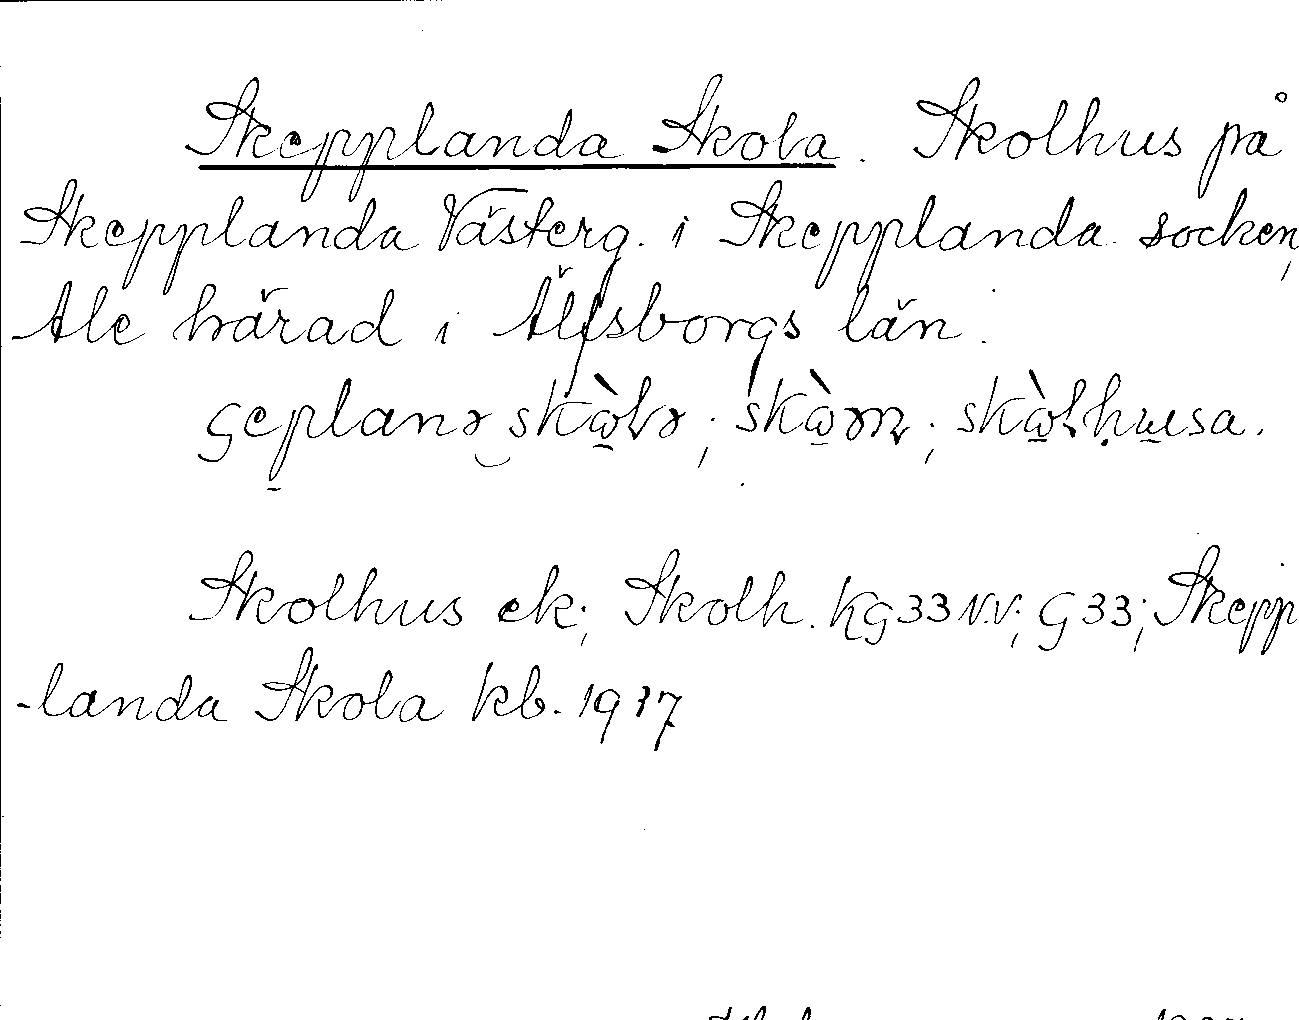 Skepplanda Skola. Skolhus på
Skepplanda Västerg. i Skepplanda socken,
Ale härad i Älfsborgs län.
skolhusa.
Skolhus ek; Skolh. Kg 33 N.V; G 33; Skepp
-landa Skola kb. 1937